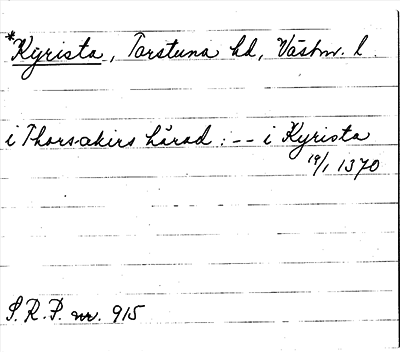 *Kyrista, Torstuna hd, Västm. l.
i Thorsakirs härad : -- i Kyrista
19/1 1370
S.R.P. nr. 915